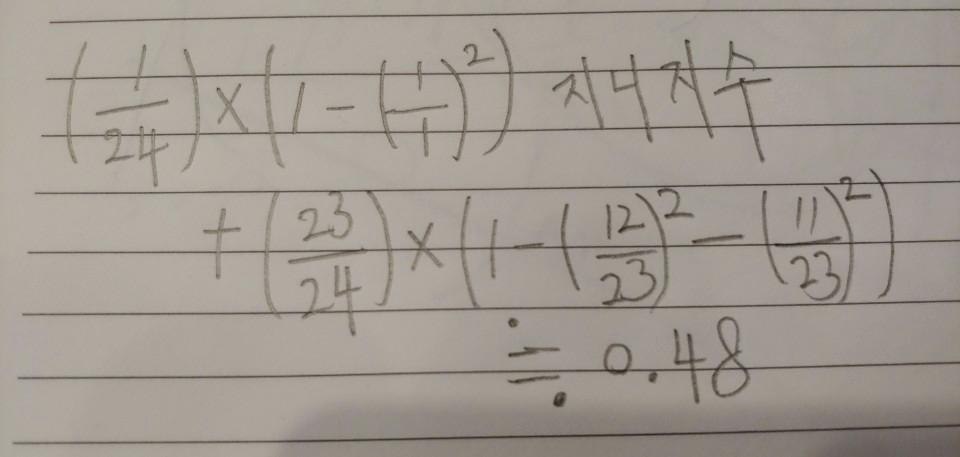 (1/24) × (1 - (1/1)²) 지니지수
+ (23/24) × (1 - (12/23)² - (11/23)²)
≒ 0.48